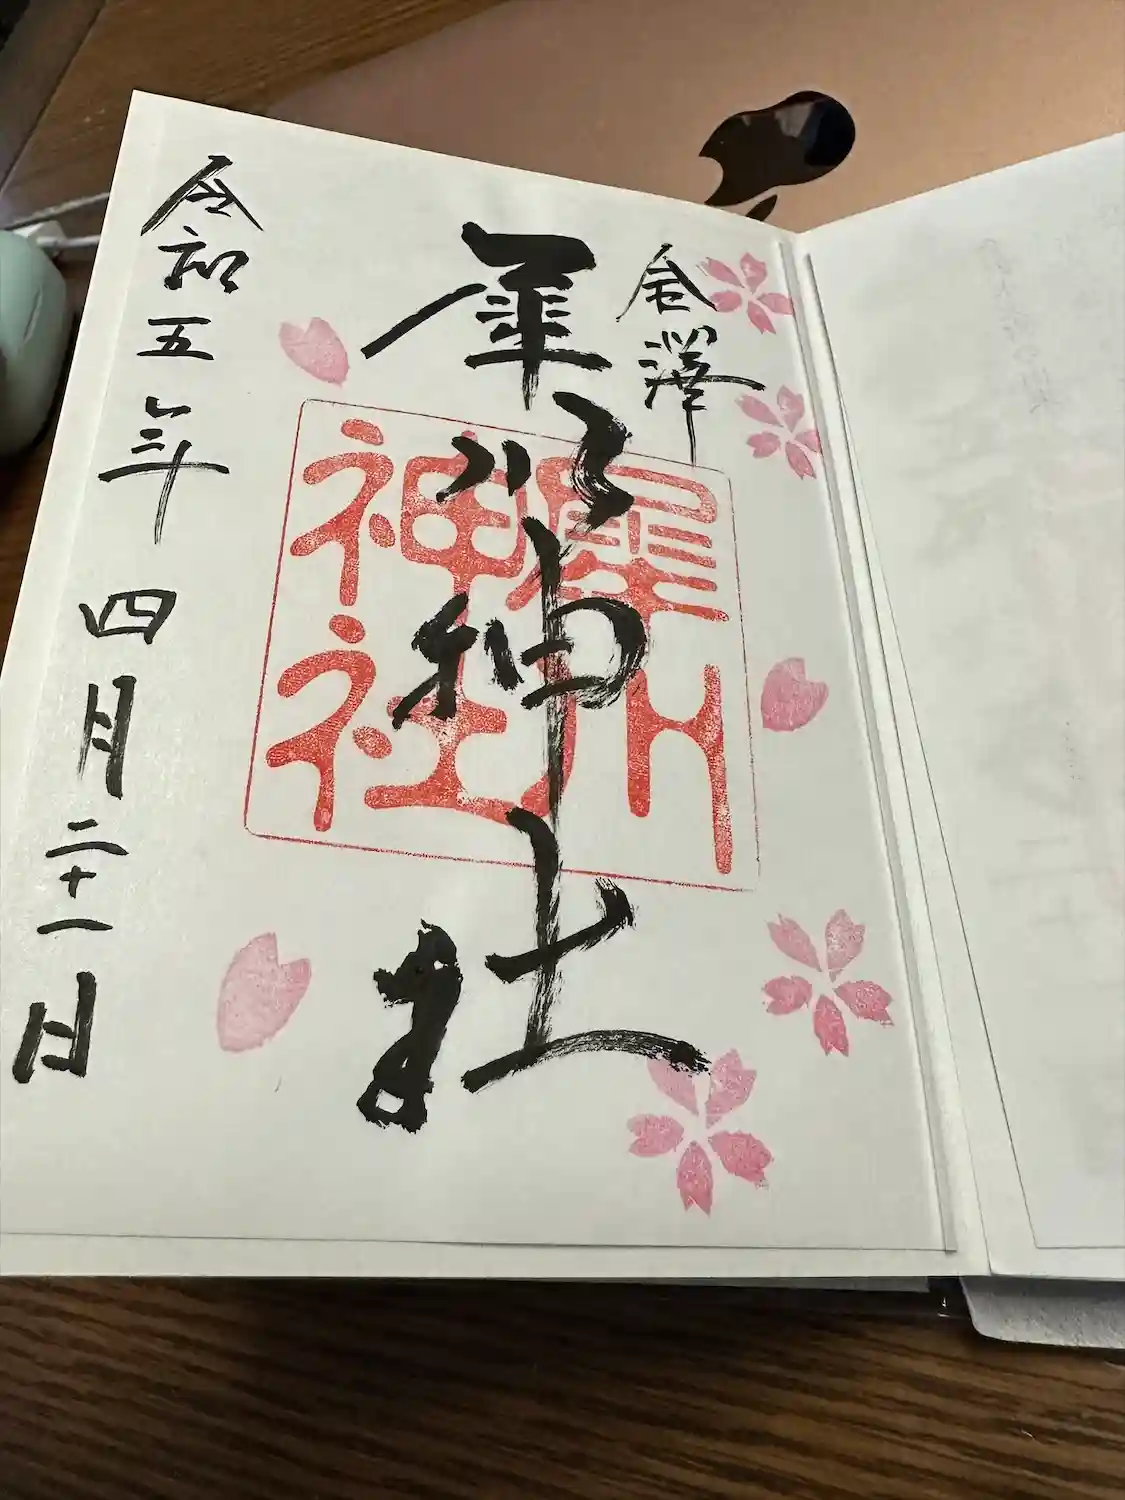 金澤
犀川神社
犀川
神社
令和五年四月二十一日